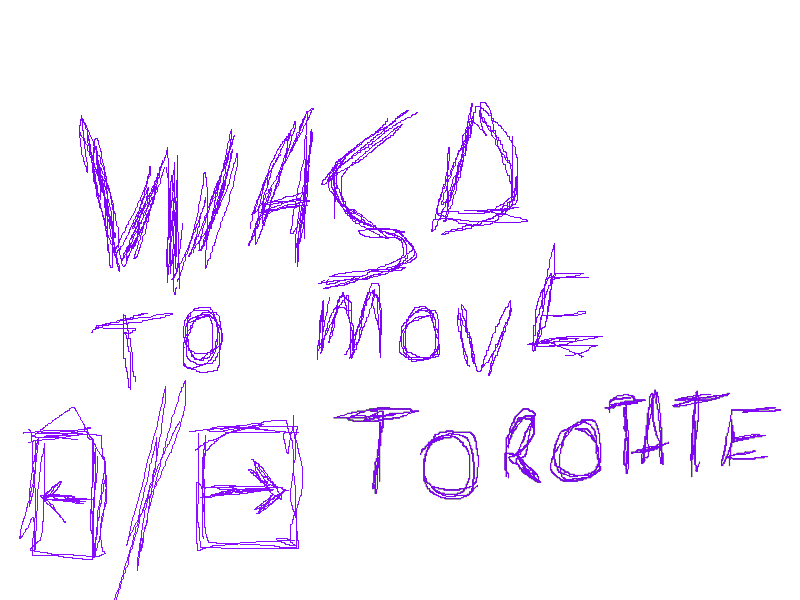 WASD
TO MOVE
←/→ TO ROTATE